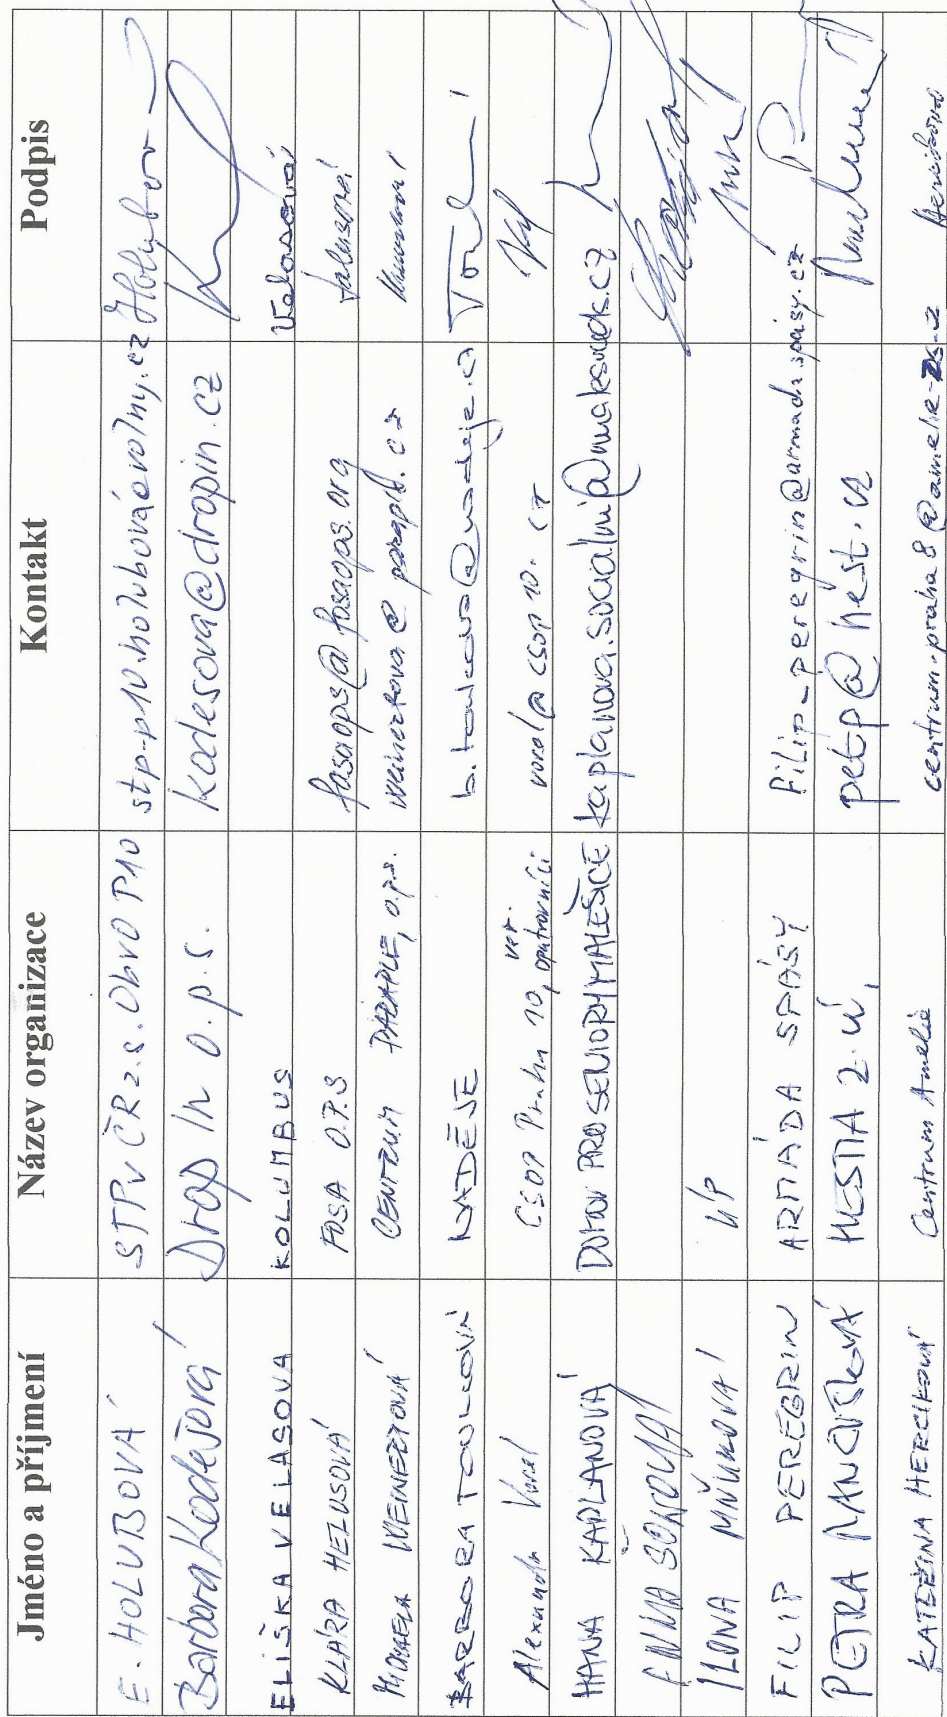 Jméno a příjmení Název organizace Kontakt Podpis
E. HOLUBOVÁ STPv ČR z.s. ObvO P10 stp-p10.holubová@volny.cz Holubova
Barbora Kodešová Drop In o.p.s. kodesova@dropin.cz
ELIŠKA VELASOVÁ KOLUMBUS Velasová
KLÁRA HELUSOVÁ FOSA O.P.S fosaops@fosaops.org Helusová
MICHAELA WEINERTOVÁ CENTRUM PARAPLE, o.p.s. weinertova@paraple.cz
BARBORA TOULCOVÁ NADĚJE
Alexandr Vocel ČSOP Praha 10, opatrovníci vocel@csop10.cz
HANA KAPLANOVÁ DOMOV PRO SENIORY MALEŠICE kaplanova.socialni@
ÚP
ILONA MŇUKOVÁ
FILIP PEREGRIN ARMÁDA SPÁSY Filip_peregrin@armadaspasy.cz
PETRA HESTIA z.ú. petp@hest.cz
KATEŘINA HERCIKOVÁ Centrum Amelie centrum.praha8@amelie-zs.cz Hercikova